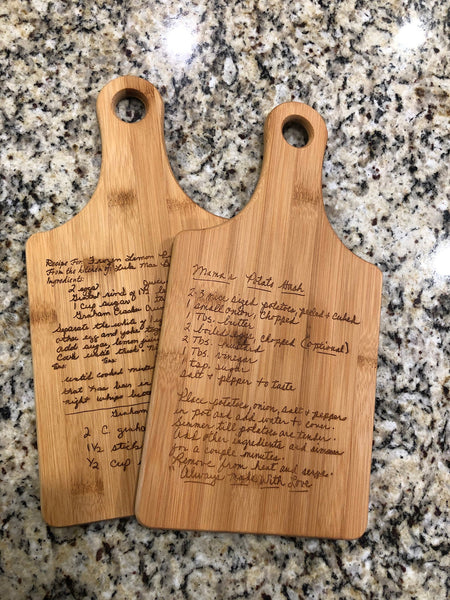 Recipe For: Frozen Lemon
From the kitchen of Lula Mae
Ingredients:
2 eggs
Grated rind of
1 cup sugar
Graham Cracker
Separate the whites
other egg and yolks
add sugar, lemon juice
Cook until thick.
until cooked
that has been in
night whip
Graham
2 C grah
1½ stick
½ cup
Mama's Potato Hash
2-3 nice sized potatoes, peeled & cubed
1 small onion, chopped
1 Tbs. butter
2 boiled eggs chopped (optional)
2 Tbs. mustard
1 Tbs. vinegar
1 tsp. sugar
Salt & pepper to taste
Place potatoes, onion, salt & pepper
in pot and add water to cover.
Simmer till potatoes are tender.
Add other ingredients and simmer
for a couple minutes.
Remove from heat and serve.
Always Made With Love